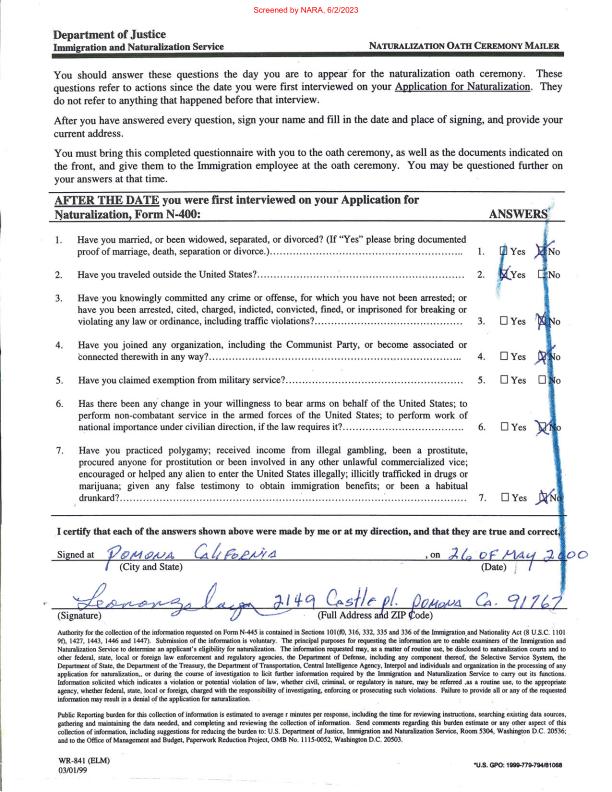 Screened by NARA, 6/2/2023
Department of Justice
Immigration and Naturalization Service NATURALIZATION OATH CEREMONY MAILER
You should answer these questions the day you are to appear for the naturalization oath ceremony. These
questions refer to actions since the date you were first interviewed on your Application for Naturalization. They
do not refer to anything that happened before that interview.
After you have answered every question, sign your name and fill in the date and place of signing, and provide your
current address.
You must bring this completed questionnaire with you to the oath ceremony, as well as the documents indicated on
the front, and give them to the Immigration employee at the oath ceremony. You may be questioned further on
your answers at that time.
AFTER THE DATE you were first interviewed on your Application for
Naturalization, Form N-400: ANSWERS
1. Have you married, or been widowed, separated, or divorced? (If "Yes" please bring documented
proof of marriage, death, separation or divorce.)........ 1. ☐ Yes ☒ No
2. Have you traveled outside the United States?........ 2. ☒ Yes ☐ No
3. Have you knowingly committed any crime or offense, for which you have not been arrested; or
have you been arrested, cited, charged, indicted, convicted, fined, or imprisoned for breaking or
violating any law or ordinance, including traffic violations?........ 3. ☐ Yes ☒ No
4. Have you joined any organization, including the Communist Party, or become associated or
connected therewith in any way?........ 4. ☐ Yes ☒ No
5. Have you claimed exemption from military service?........ 5. ☐ Yes ☐ No
6. Has there been any change in your willingness to bear arms on behalf of the United States; to
perform non-combatant service in the armed forces of the United States; to perform work of
national importance under civilian direction, if the law requires it?........ 6. ☐ Yes ☒ No
7. Have you practiced polygamy; received income from illegal gambling, been a prostitute,
procured anyone for prostitution or been involved in any other unlawful commercialized vice;
encouraged or helped any alien to enter the United States illegally; illicitly trafficked in drugs or
marijuana; given any false testimony to obtain immigration benefits; or been a habitual
drunkard?........ 7. ☐ Yes ☒ No
I certify that each of the answers shown above were made by me or at my direction, and that they are true and correct.
Signed at POMONA CALIFORNIA , on 26 OF MAY 2000
(City and State) (Date)
2149 Castle pl. POMONA Ca. 91767
(Signature) (Full Address and ZIP Code)
Authority for the collection of the information requested on Form N-445 is contained in Sections 101(f), 316, 332, 335 and 336 of the Immigration and Nationality Act (8 U.S.C. 1101
9f), 1427, 1443, 1446 and 1447). Submission of the information is voluntary. The principal purposes for requesting the information are to enable examiners of the Immigration and
Naturalization Service to determine an applicant's eligibility for naturalization. The information requested may, as a matter of routine use, be disclosed to naturalization courts and to
other federal, state, local or foreign law enforcement and regulatory agencies, the Department of Defense, including any component thereof, the Selective Service System, the
Department of State, the Department of the Treasury, the Department of Transportation, Central Intelligence Agency, Interpol and individuals and organization in the processing of any
application for naturalization,, or during the course of investigation to licit further information required by the Immigration and Naturalization Service to carry out its functions.
Information solicited which indicates a violation or potential violation of law, whether civil, criminal, or regulatory in nature, may be referred ,as a routine use, to the appropriate
agency, whether federal, state, local or foreign, charged with the responsibility of investigating, enforcing or prosecuting such violations. Failure to provide all or any of the requested
information may result in a denial of the application for naturalization.
Public Reporting burden for this collection of information is estimated to average r minutes per response, including the time for reviewing instructions, searching existing data sources,
gathering and maintaining the data needed, and completing and reviewing the collection of information. Send comments regarding this burden estimate or any other aspect of this
collection of information, including suggestions for reducing the burden to: U.S. Department of Justice, Immigration and Naturalization Service, Room 5304, Washington D.C. 20536;
and to the Office of Management and Budget, Paperwork Reduction Project, OMB No. 1115-0052, Washington D.C. 20503.
WR-841 (ELM)
03/01/99 *U.S. GPO: 1999-779-794/81068